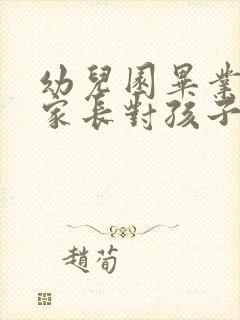 幼兒園畢業
家長對孩子
趙荀